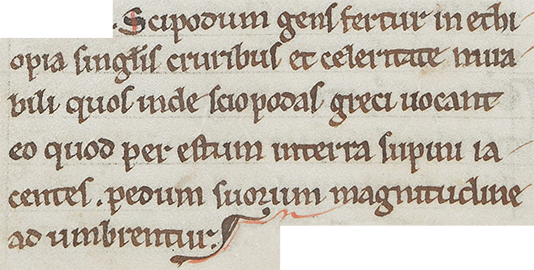 Scipodum gens fertur in ethi
opia singlis cruribus et celeritate mira
bili quos inde sciopodas greci uocant
eo quod per estum interra supini ia
centes. pedum suorum magnitudine
ad umbrentur.